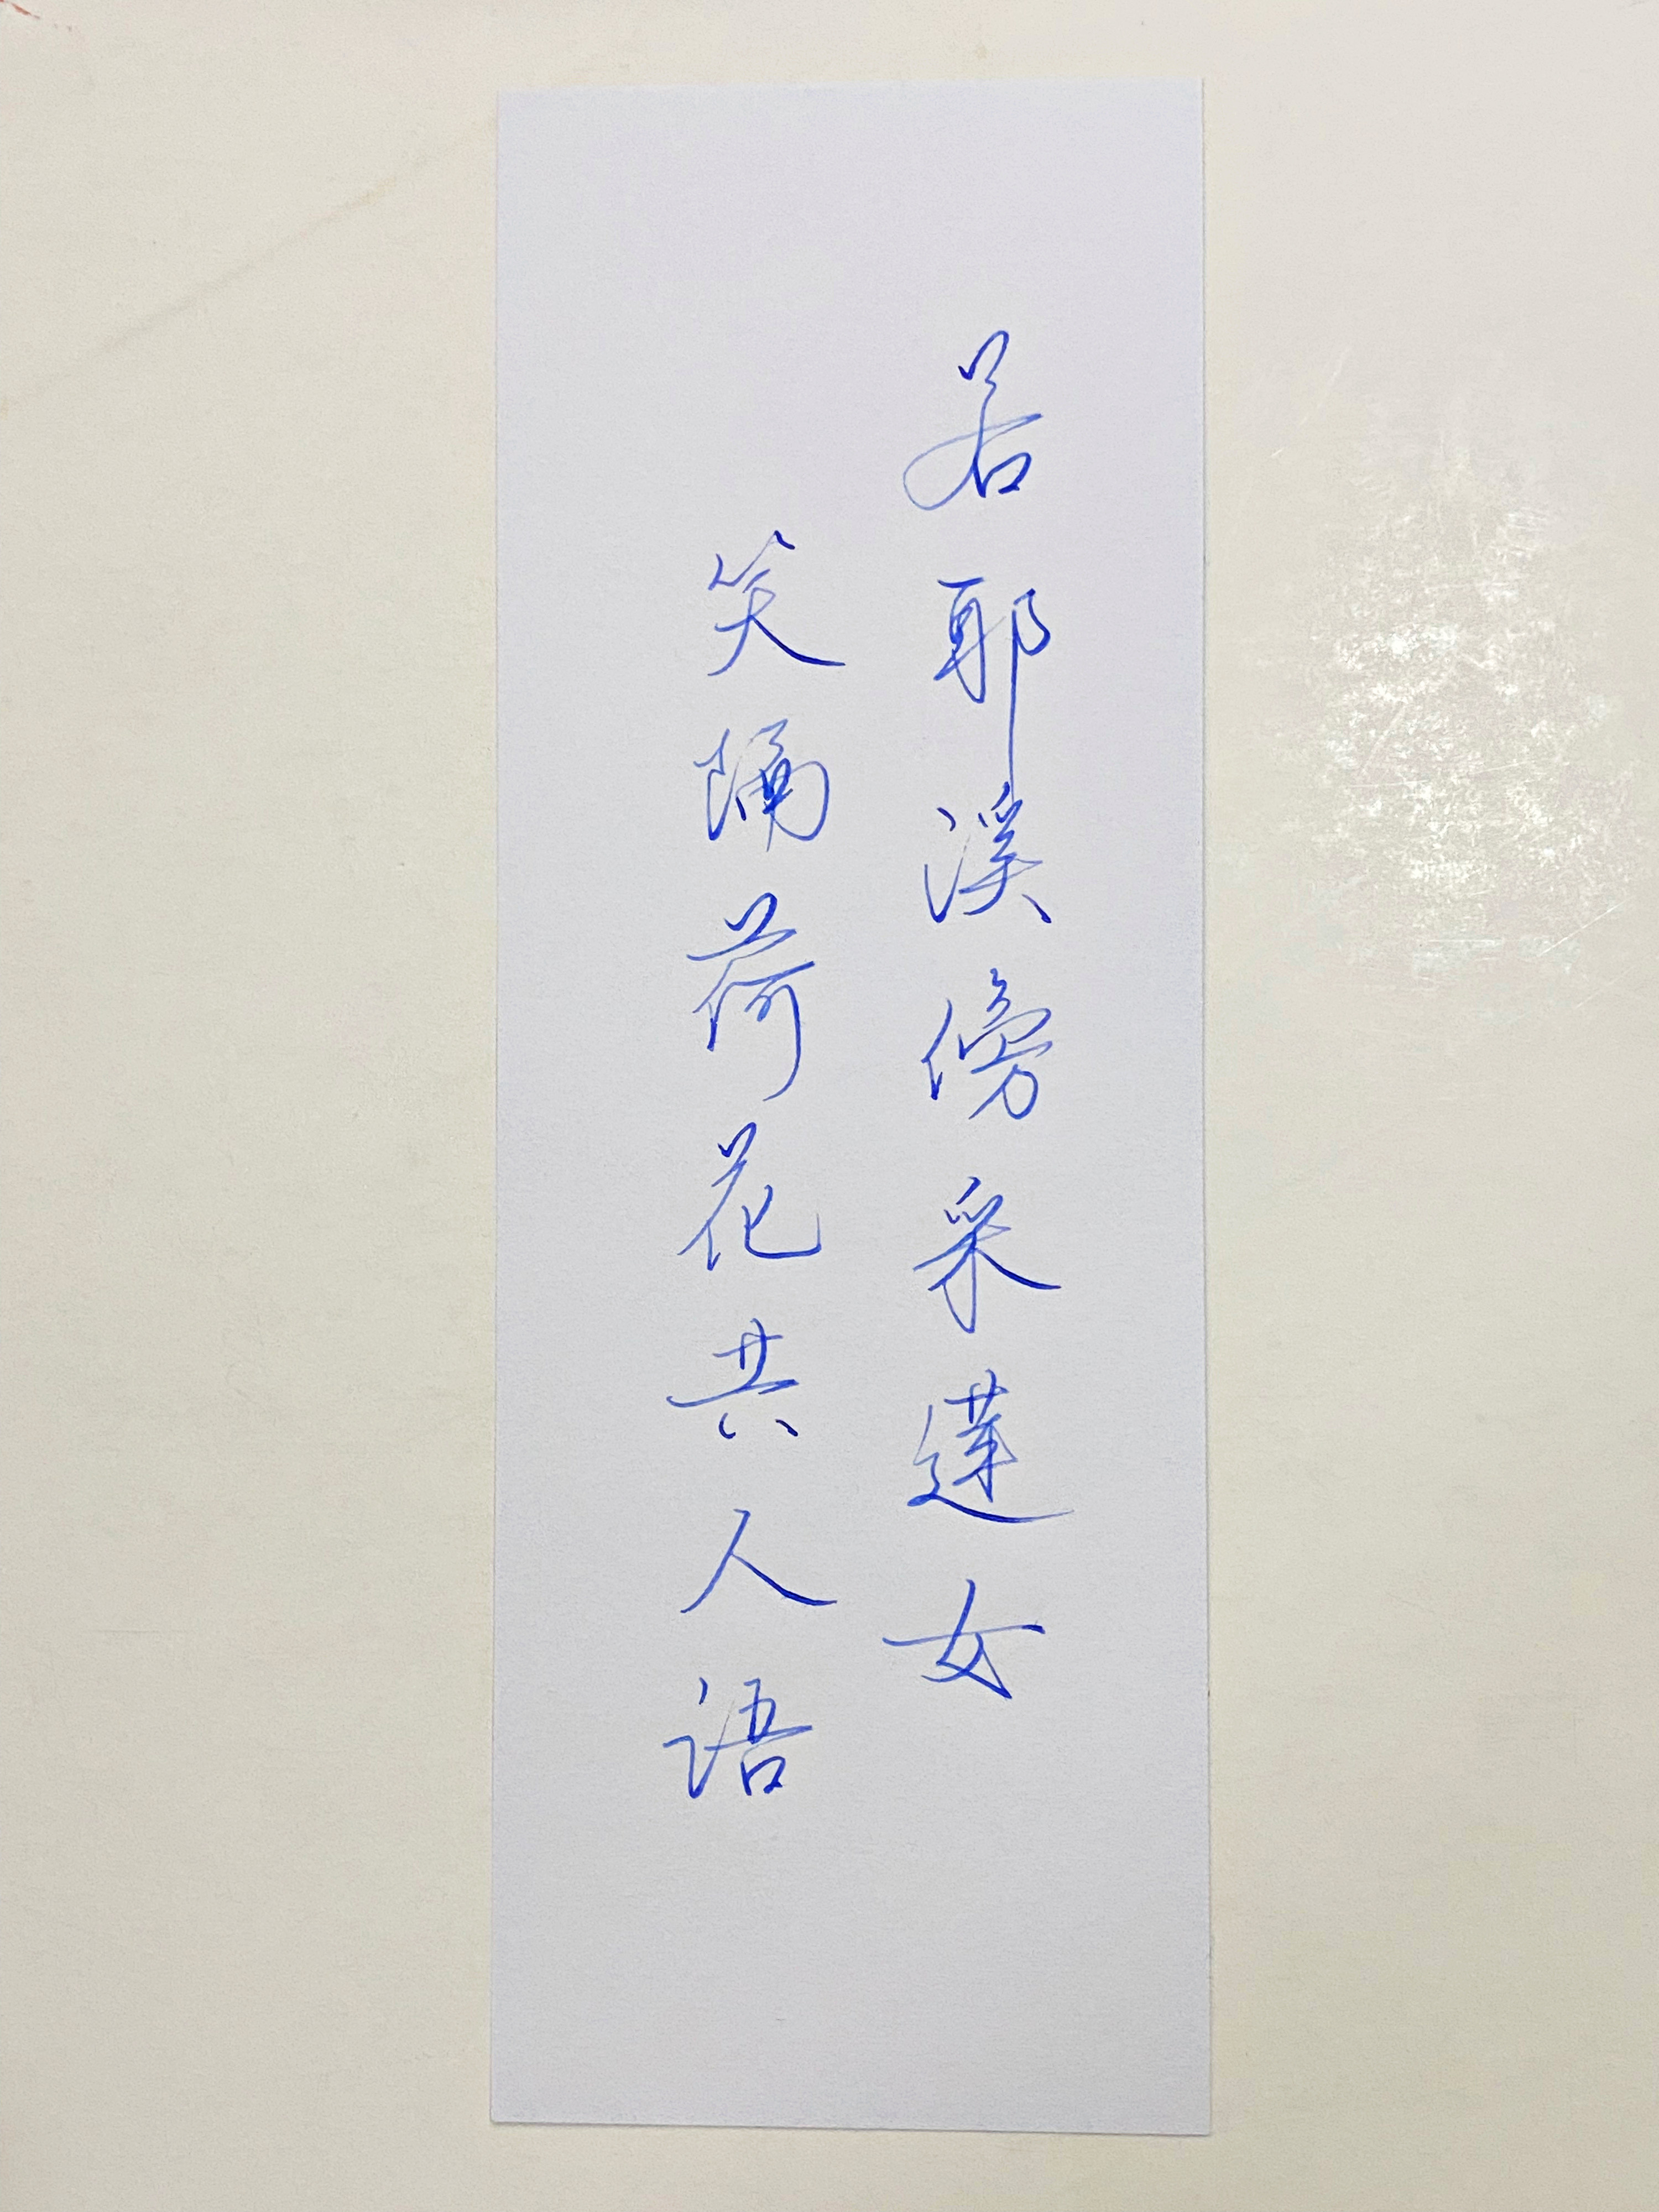 若耶溪傍采莲女
笑隔荷花共人语